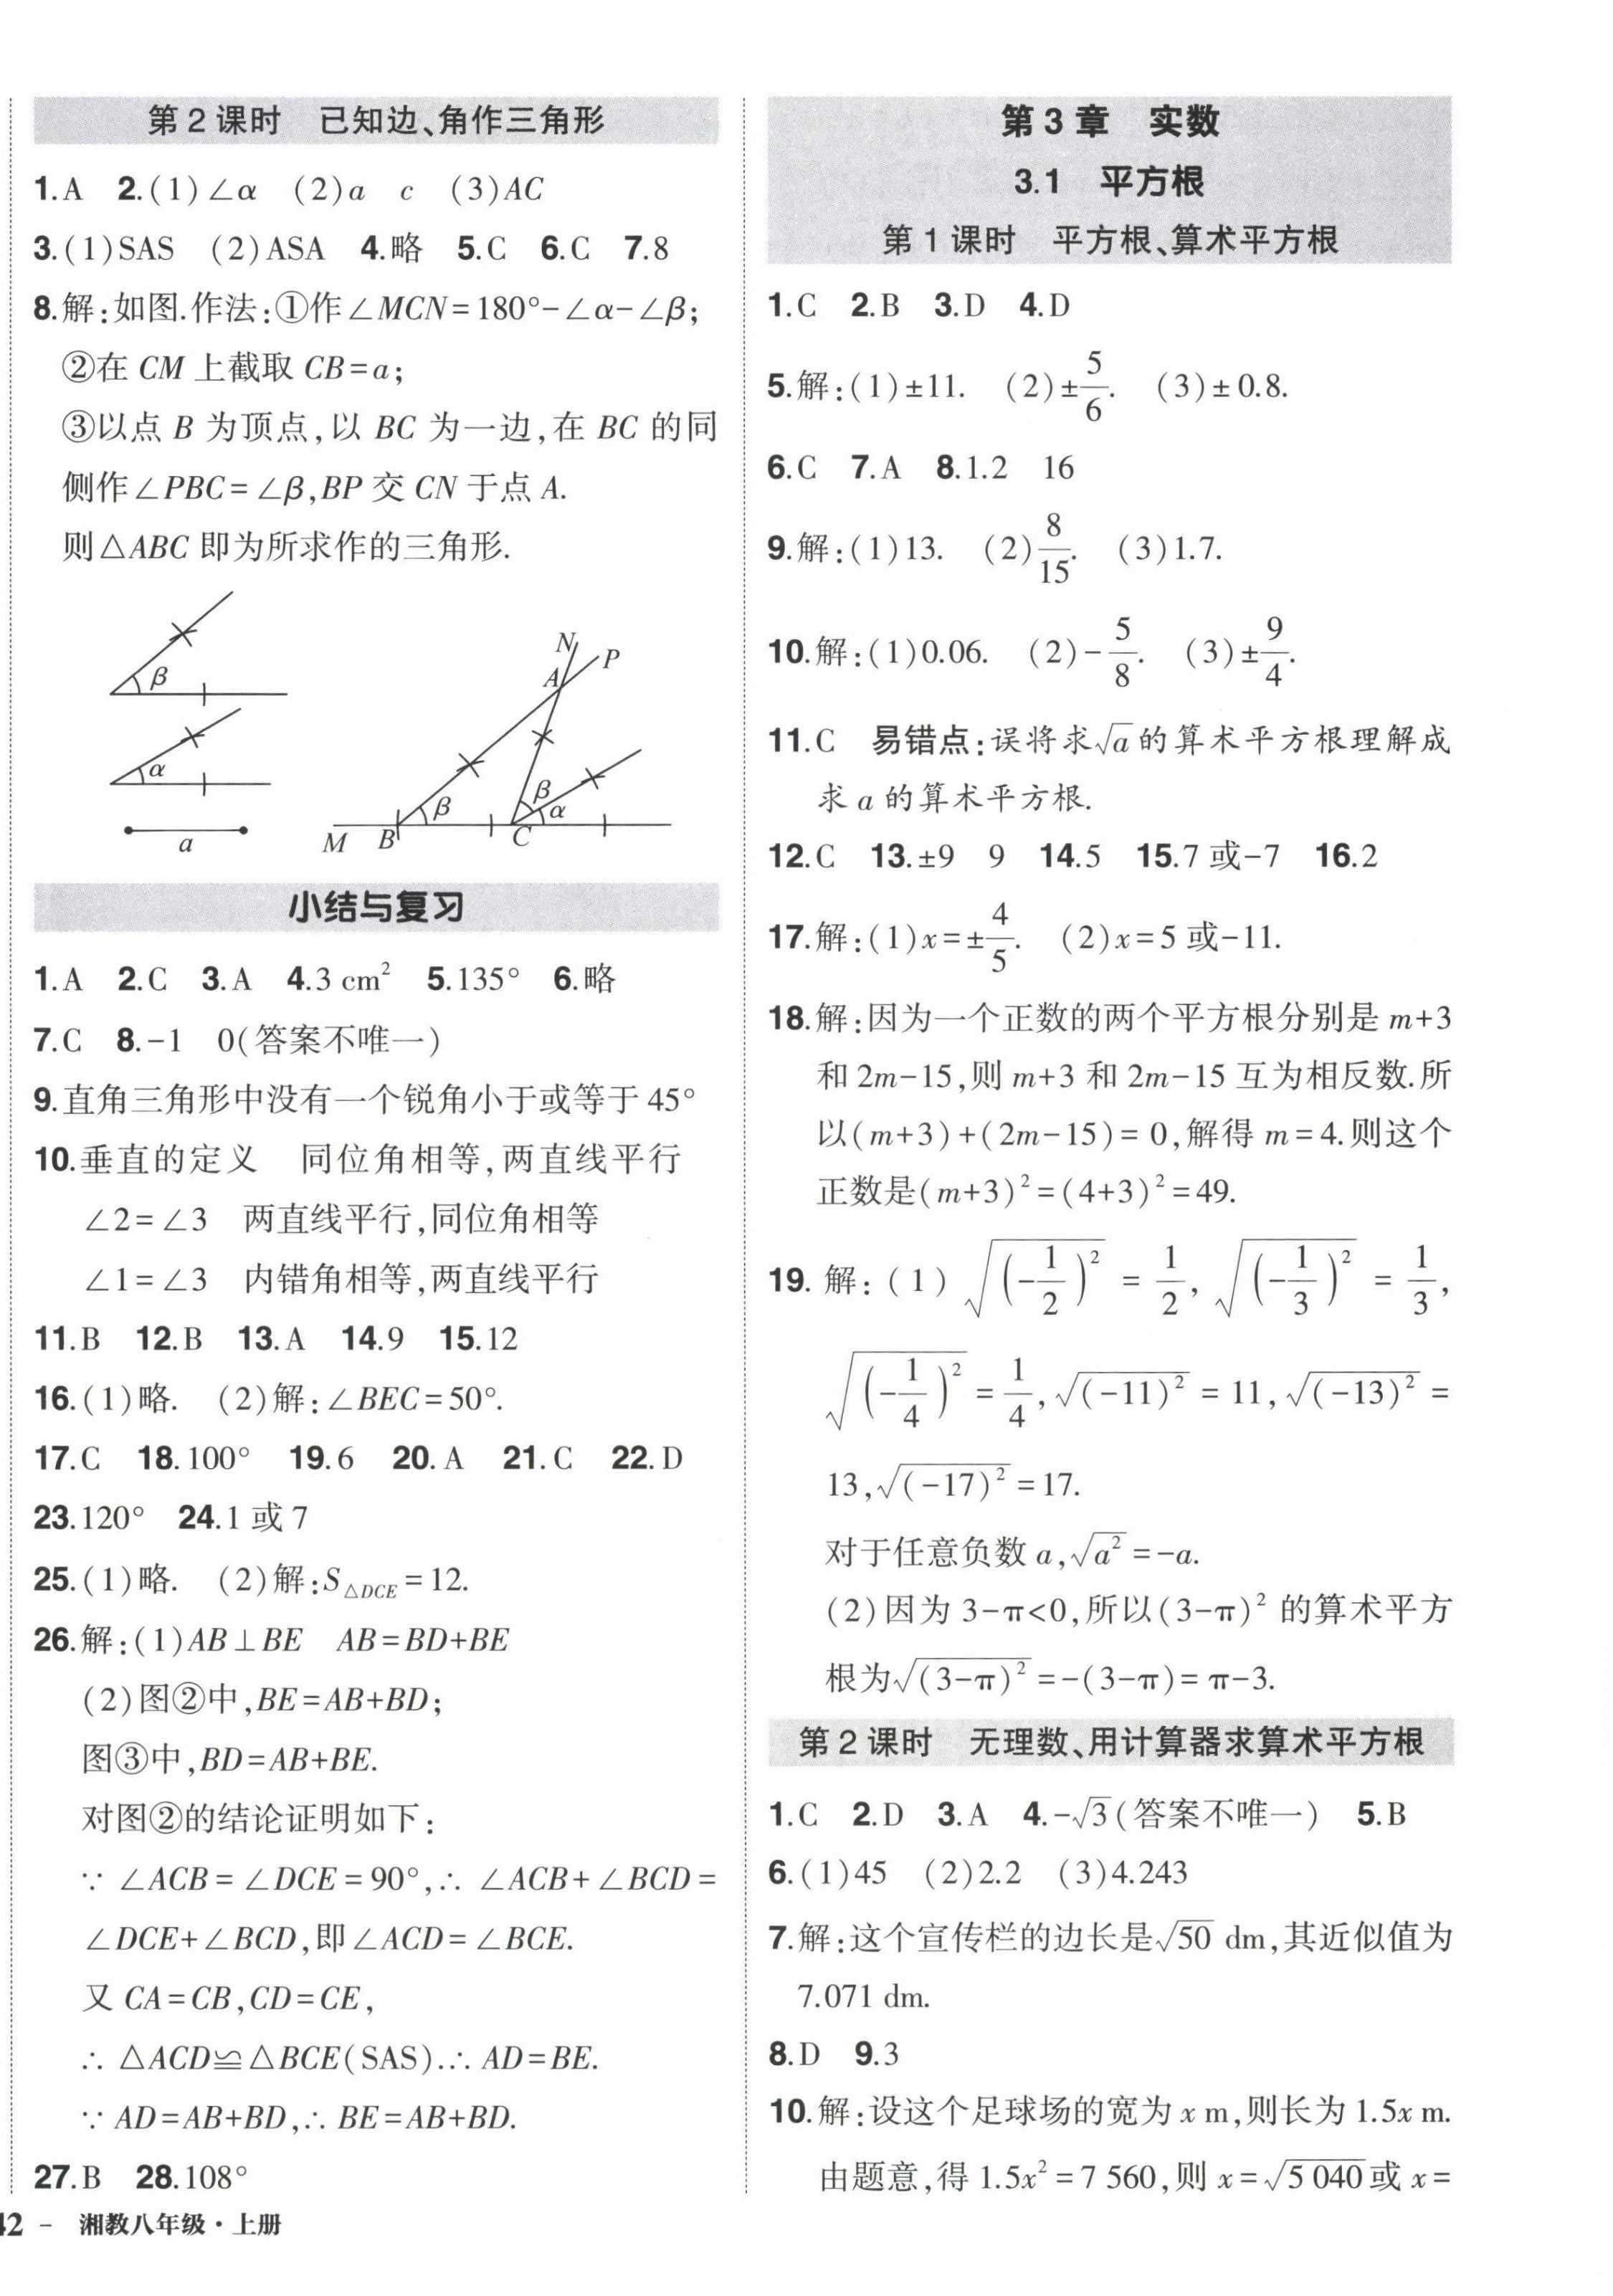 第2课时 已知边、角作三角形
1.A 2.(1)∠α (2)a c (3)AC
3.(1)SAS (2)ASA 4.略 5.C 6.C 7.8
8.解:如图.作法:①作∠MCN=180°-∠α-∠β;
②在 CM 上截取 CB=a;
③以点 B 为顶点,以 BC 为一边,在 BC 的同
侧作∠PBC=∠β,BP 交 CN 于点 A.
则△ABC 即为所求作的三角形.
β
α
a
N
P
A
β
β
α
M B C
小结与复习
1.A 2.C 3.A 4.3 cm² 5.135° 6.略
7.C 8.-1 0(答案不唯一)
9.直角三角形中没有一个锐角小于或等于45°
10.垂直的定义 同位角相等,两直线平行
∠2=∠3 两直线平行,同位角相等
∠1=∠3 内错角相等,两直线平行
11.B 12.B 13.A 14.9 15.12
16.(1)略. (2)解:∠BEC=50°.
17.C 18.100° 19.6 20.A 21.C 22.D
23.120° 24.1 或 7
25.(1)略. (2)解:S△DCE=12.
26.解:(1)AB⊥BE AB=BD+BE
(2)图②中,BE=AB+BD;
图③中,BD=AB+BE.
对图②的结论证明如下:
∵ ∠ACB=∠DCE=90°,∴ ∠ACB+∠BCD=
∠DCE+∠BCD,即∠ACD=∠BCE.
又 CA=CB,CD=CE,
∴ △ACD≌△BCE(SAS).∴ AD=BE.
∵ AD=AB+BD,∴ BE=AB+BD.
27.B 28.108°
42 - 湘教八年级·上册
第3章 实数
3.1 平方根
第1课时 平方根、算术平方根
1.C 2.B 3.D 4.D
5.解:(1)±11. (2)±5/6. (3)±0.8.
6.C 7.A 8.1.2 16
9.解:(1)13. (2)8/15. (3)1.7.
10.解:(1)0.06. (2)-5/8. (3)±9/4.
11.C 易错点:误将求√a的算术平方根理解成
求 a 的算术平方根.
12.C 13.±9 9 14.5 15.7 或-7 16.2
17.解:(1)x=±4/5. (2)x=5 或-11.
18.解:因为一个正数的两个平方根分别是 m+3
和 2m-15,则 m+3 和 2m-15 互为相反数.所
以(m+3)+(2m-15)=0,解得 m=4.则这个
正数是(m+3)²=(4+3)²=49.
19.解:(1)√((-1/2)²)=1/2,√((-1/3)²)=1/3,
√((-1/4)²)=1/4,√((-11)²)=11,√((-13)²)=
13,√((-17)²)=17.
对于任意负数 a,√(a²)=-a.
(2)因为 3-π<0,所以(3-π)² 的算术平方
根为√((3-π)²)=-(3-π)=π-3.
第2课时 无理数、用计算器求算术平方根
1.C 2.D 3.A 4.-√3(答案不唯一) 5.B
6.(1)45 (2)2.2 (3)4.243
7.解:这个宣传栏的边长是√50 dm,其近似值为
7.071 dm.
8.D 9.3
10.解:设这个足球场的宽为 x m,则长为 1.5x m.
由题意,得 1.5x²=7 560,则 x=√(5 040)或 x=